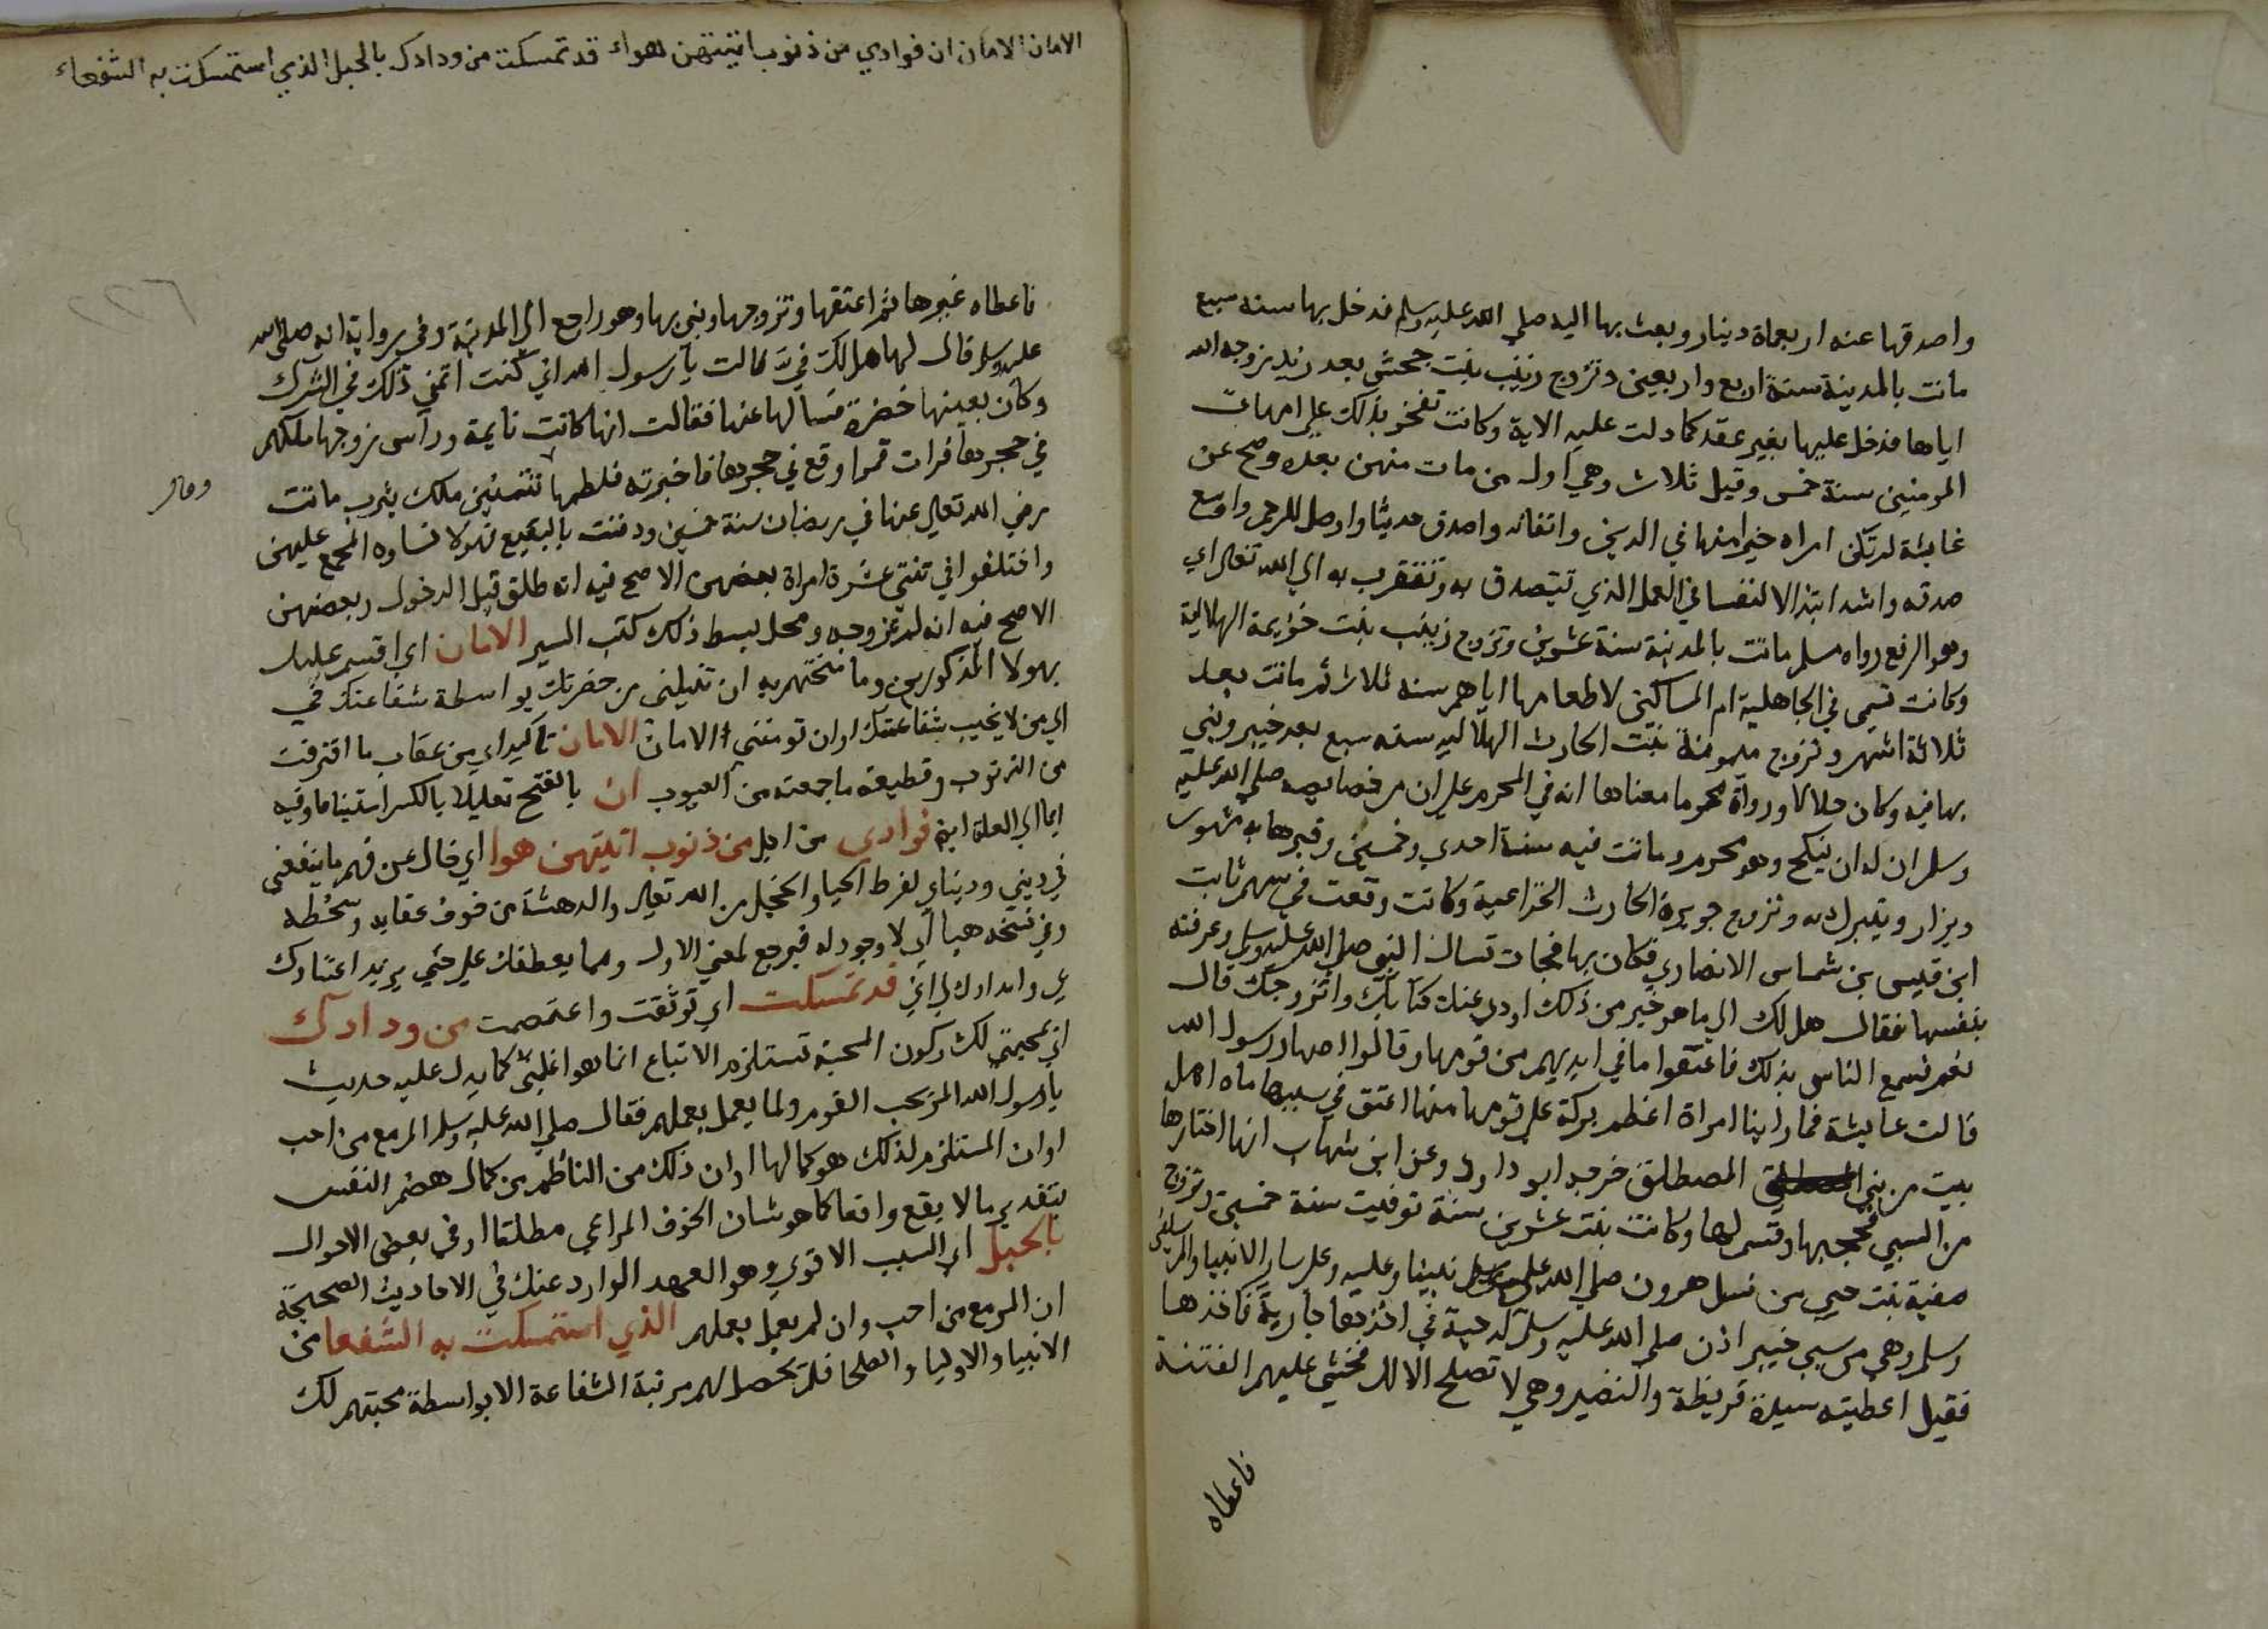 واصدقها عنه اربعماة دينار وبعث بها اليه صلي الله عليه وسلم فدخل بها سنه سبع
ماتت بالمدينة سنة اربع واربعين وتزوج زينب بنت جحش بعد زيد بزوجه الله
اياها فدخل عليها بغير عقد كما دلت عليه الاية وكانت تفخر بذلك علي امهات
المومنين سنة خمس وقيل ثلاث وهي اول من مات منهن بعده وصح عن
عايشة لم تكن امراه خيرا منها في الدين واتقا لله واصدق حديثا واوصل للرحم واوسع
صدقه واشد ابتذالا لنفسا في العمل الذي تتصدق به وتتقرب به الي الله تعالي اي
وهو الرفع رواه مسلم ماتت بالمدينة سنة عشرين وتزوج زينب بنت خزيمة الهلالية
وكانت تسمي في الجاهلية ام المساكين لاطعامها اياهم سنه ثلاث ثم ماتت بعد
ثلاثة اشهر وتزوج ميمونة بنت الحارث الهلاليه سنه سبع بعد خيبر وبني
بها فيه وكان حلالا ورواة محرما معناها انه في المحرم علي ان من خصايصه صلي الله عليه
وسلم ان له ان ينكح وهو محرم وماتت فيه سنة احدي وخمسين وقبرها به مشهور
ويزار ويتبرك به وتزوج جويرة الحارث الخزاعية وكانت وقعت في سهم ثابت
ابن قيس بن شماس الانصاري فكان بها فجات تسال النبي صلي الله عليه وسلم وعرفته
بنفسها فقال هل لك الي ما هو خير من ذلك اودي عنك كتابك واتزوجك قال
نعم فسمع الناس بذلك فاعتقوا ما في ايديهم من قومها وقالوا اصهار رسول الله
قالت عايشة فما راينا امراة اعظم بركة علي قومها منها اعتق في سببها ماه اهل
بيت من بني المصطلق خرجه ابو داود وعن ابن شهاب انها اختارها
من السبي فحجبها وقسم لها وكانت بنت عشرين سنة توفيت سنة خمسين وتزوج
صفية بنت حيي من نسل هرون صلي الله علي نبينا وعليه وعلي ساير الانبيا والمرسلين
وسلم وهي من سبي خيبر اذن صلي الله عليه وسلم لدحية في اخذها جارية فاخذها
فقيل اعطيته سيدة قريظة والنضير وهي لا تصلح الا لك فخشي عليهم الفتنة
فاعطاه
الامان الامان ان فوادي من ذنوب اتيتهن هواء قد تمسكت من ودادك بالحبل الذي استمسكت به الشفعاء
فاعطاه غيرها ثم اعتقها وتزوجها وبني بها وهو راجع الي المدينة وفي رواية انه صلي الله
عليه وسلم قال لها هل لك في قالت يارسول الله اني كنت اتمني ذلك في الشرك
وكان بعينها خضرة فسالها عنها فقالت انها كانت نايمة وراس زوجها ملكهم
في حجرها فرات قمرا وقع في حجرها فاخبرته فلطمها تتمنين ملك يثرب ماتت
رضي الله تعالي عنها في رمضان سنة خمسين ودفنت بالبقيع فهولا نساوه المجمع عليهن
واختلفوا في ثنتي عشرة امراة بعضهن الاصح فيه انه طلق قبل الدخول وبعضهن
الاصح فيه انه لم يتزوجه ومحل بسط ذلك كتب السير الامان اي اقسم عليك
بهولا المذكورين وما منحتهم به ان تنيلني من حضرتك بواسطة شفاعتك في
الي من لا يخيب شفاعتك اوان تومنني الامان الامان تاكيد اي من عقاب ما اقترفت
من الذنوب وقطيعة ما جمعته من العيوب ان بالفتح تعليلا بالكسر استينافا وفيه
ايما الي العلة ايضا فوادي من اجل من ذنوب اتيتهن هوا اي خال عن فهم ما ينفعني
في ديني ودنياي لفرط الحيا والخجل من الله تعالي والدهشة من خوف عقابه وسخطه
وفي نسخه هبا اي لا وجود له فيرجع لمعني الاول ومما يعطفك علي حتي يزيد اعتنادك
بي وامدادك لي اني قد تمسكت اي توثقت واعتصمت من ودادك
اي محبتي لك وكون المحبة تستلزم الاتباع انما هو اغلبي كما يدل عليه حديث
يارسول الله المرء يحب القوم ولما يعمل بعملهم فقال صلي الله عليه وسلم المرء مع من احب
اوان المستلزم لذلك هو كمالها اوان ذلك من الناظم من كمال هضم النفس
بتقدير ما لا يقع واقعا كما هو شان الخوف المراعي مطلقا او في بعض الاحوال
بالحبل اي السبب الاقوي وهو العهد الوارد عنك في الاحاديث الصحيحة
ان المرء مع من احب وان لم يعمل بعملهم الذي استمسكت به الشفعا من
الانبيا والاوليا والصلحا فلم تحصل لهم مرتبة الشفاعة الا بواسطة محبتهم لك
٢٢٦